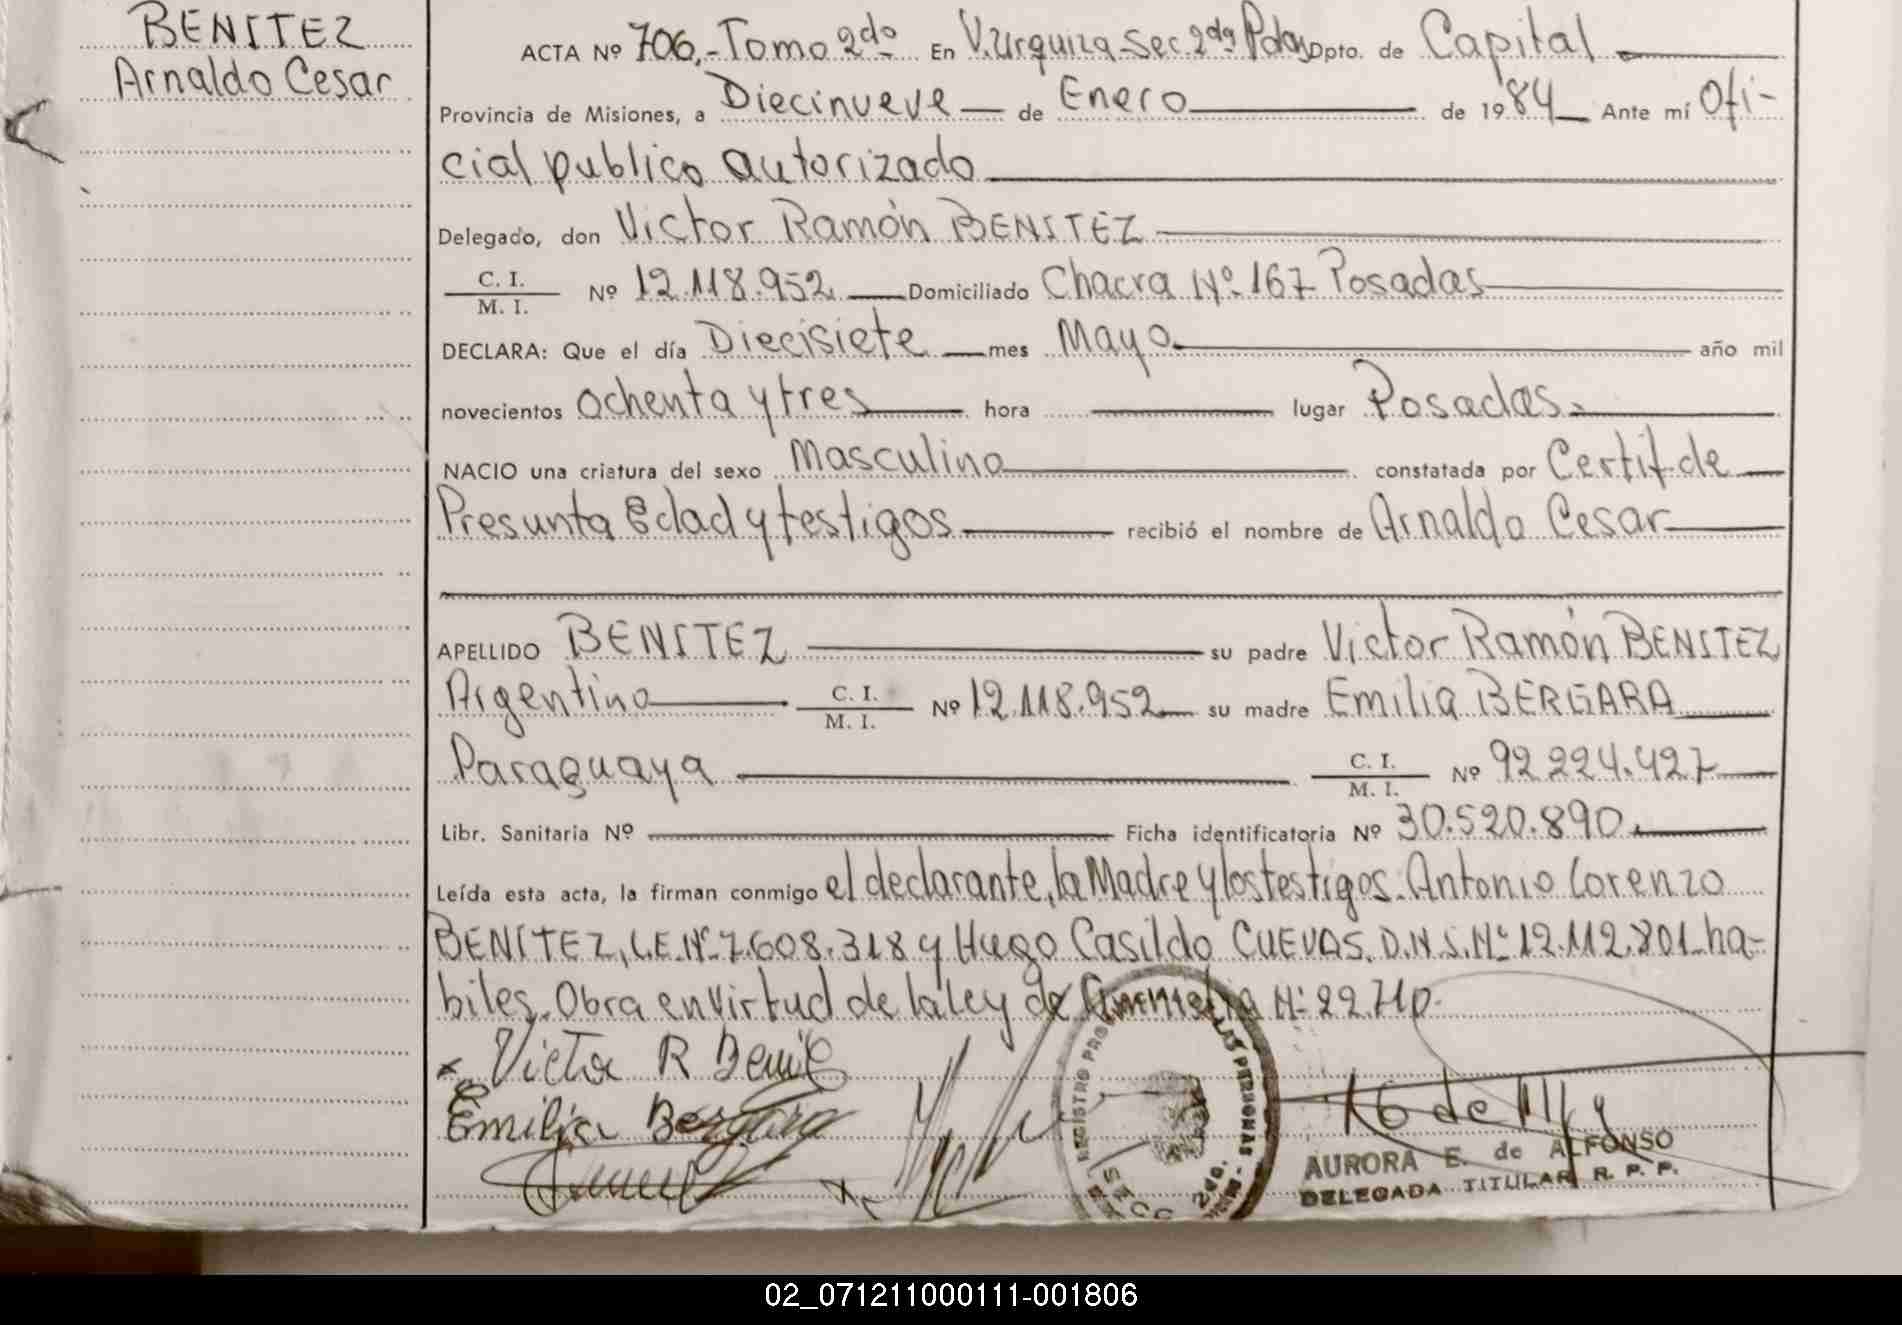 BENITEZ
Arnaldo Cesar
ACTA Nº 706.- Tomo 2do En V. Urquiza-Sec. 2da Pdas Dpto. de Capital
Provincia de Misiones, a Diecinueve de Enero de 1984 Ante mí Ofi-
cial publico autorizado
Delegado, don Victor Ramón BENITEZ
C. I.
M. I. Nº 12.118.952 Domiciliado Chacra Nº 167 Posadas
DECLARA: Que el día Diecisiete mes Mayo año mil
novecientos ochenta y tres hora lugar Posadas.
NACIO una criatura del sexo Masculino constatada por Certif. de
Presunta Edad y testigos recibió el nombre de Arnaldo Cesar
APELLIDO BENITEZ su padre Victor Ramón BENITEZ
Argentino C. I.
M. I. Nº 12.118.952 su madre Emilia BERGARA
Paraguaya C. I.
M. I. Nº 92 224.427
Libr. Sanitaria Nº Ficha identificatoria Nº 30.520.890.
Leída esta acta, la firman conmigo el declarante, la Madre y los testigos. Antonio Lorenzo
BENITEZ, L.E. Nº 7.608.318 y Hugo Casildo CUEVAS. D.N.I. Nº 12.112.801 ha-
biles. Obra en virtud de la ley de Amnistia Nº 22.710.
Victor R Benitez
Emilia Bergara
REGISTRO PROV. LAS PERSONAS
SECC. 2da.
AURORA E. de ALFONSO
DELEGADA TITULAR R. P. P.
02_071211000111-001806